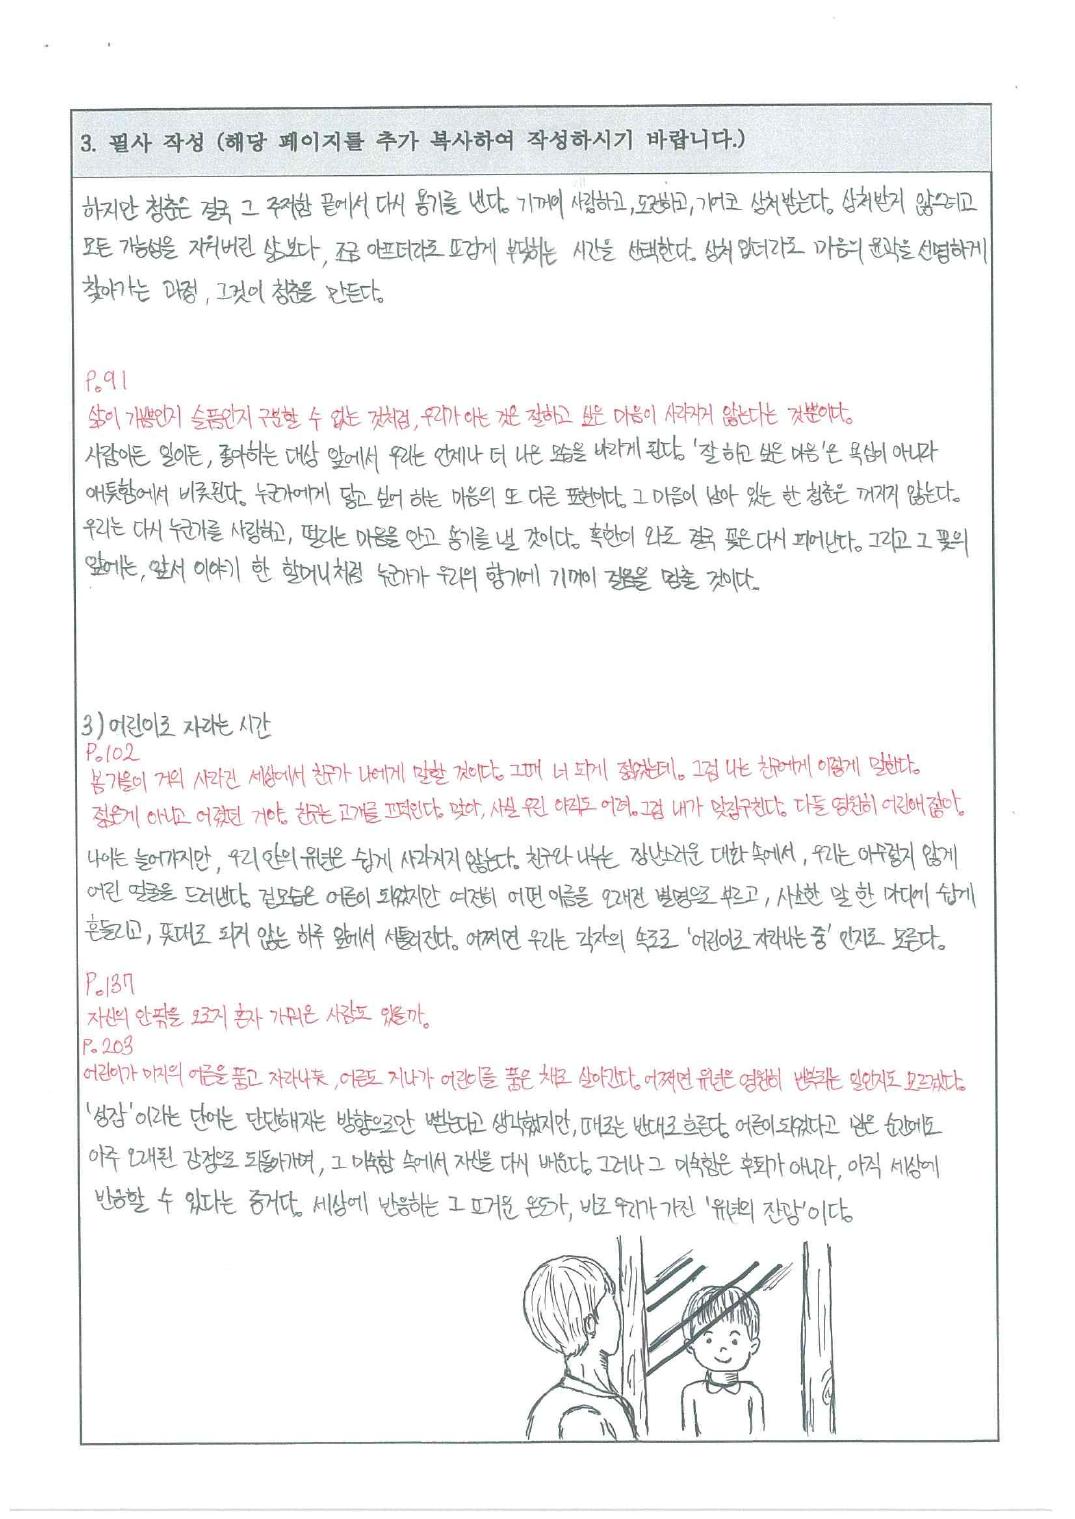 3. 필사 작성 (해당 페이지를 추가 복사하여 작성하시기 바랍니다.)
하지만 청춘은 결국 그 주저함 끝에서 다시 용기를 낸다. 기꺼이 사랑하고, 도전하고, 기어코 상처받는다. 상처받지 않으려고
모든 가능성을 지워버린 삶보다, 조금 아프더라도 뜨겁게 부딪히는 시간을 선택한다. 상처 입더라도 마음의 윤곽을 선명하게
찾아가는 과정, 그것이 청춘을 만든다.
P.91
삶이 기쁨인지 슬픔인지 구분할 수 없는 것처럼, 우리가 아는 것은 잘하고 싶은 마음이 사라지지 않는다는 것뿐이다.
사람이든 일이든, 좋아하는 대상 앞에서 우리는 언제나 더 나은 모습을 바라게 된다. '잘 하고 싶은 마음'은 욕심이 아니라
애틋함에서 비롯된다. 누군가에게 닿고 싶어 하는 마음의 또 다른 표현이다. 그 마음이 남아 있는 한 청춘은 꺼지지 않는다.
우리는 다시 누군가를 사랑하고, 떨리는 마음을 안고 용기를 낼 것이다. 혹한이 와도 결국 꽃은 다시 피어난다. 그리고 그 꽃의
앞에는, 앞서 이야기 한 할머니처럼 누군가가 우리의 향기에 기꺼이 걸음을 멈출 것이다.
3) 어린이로 자라는 시간
P.102
봄가을이 거의 사라진 세상에서 친구가 나에게 말할 것이다. 그때 너 되게 젊었는데. 그럼 나는 친구에게 이렇게 말한다.
젊은게 아니고 어렸던 거야. 친구는 고개를 끄덕인다. 맞아, 사실 우린 아직도 어려. 그럼 내가 맞장구친다. 다들 영원히 어린애잖아.
나이는 늘어가지만, 우리 안의 유년은 쉽게 사라지지 않는다. 친구와 나누는 장난스러운 대화 속에서, 우리는 아무렇지 않게
어린 얼굴을 드러낸다. 겉모습은 어른이 되었지만 여전히 어떤 이름을 오래전 별명으로 부르고, 사소한 말 한 마디에 쉽게
흔들리고, 뜻대로 되지 않는 하루 앞에서 서툴러진다. 어쩌면 우리는 각자의 속도로 '어린이로 자라나는 중' 인지도 모른다.
P.137
자신의 안팎을 오로지 혼자 가꿔온 사람도 있을까.
P.203
어린이가 미지의 어른을 품고 자라나듯, 어른도 지나간 어린이를 품은 채로 살아간다. 어쩌면 유년은 영원히 반복되는 일인지도 모르겠다.
'성장'이라는 단어는 단단해지는 방향으로만 뻗는다고 생각했지만, 때로는 반대로 흐른다. 어른이 되었다고 믿은 순간에도
아주 오래된 감정으로 되돌아가며, 그 미숙함 속에서 자신을 다시 배운다. 그러나 그 미숙함은 후퇴가 아니라, 아직 세상에
반응할 수 있다는 증거다. 세상에 반응하는 그 뜨거운 온도가, 바로 우리가 가진 '유년의 잔광'이다.